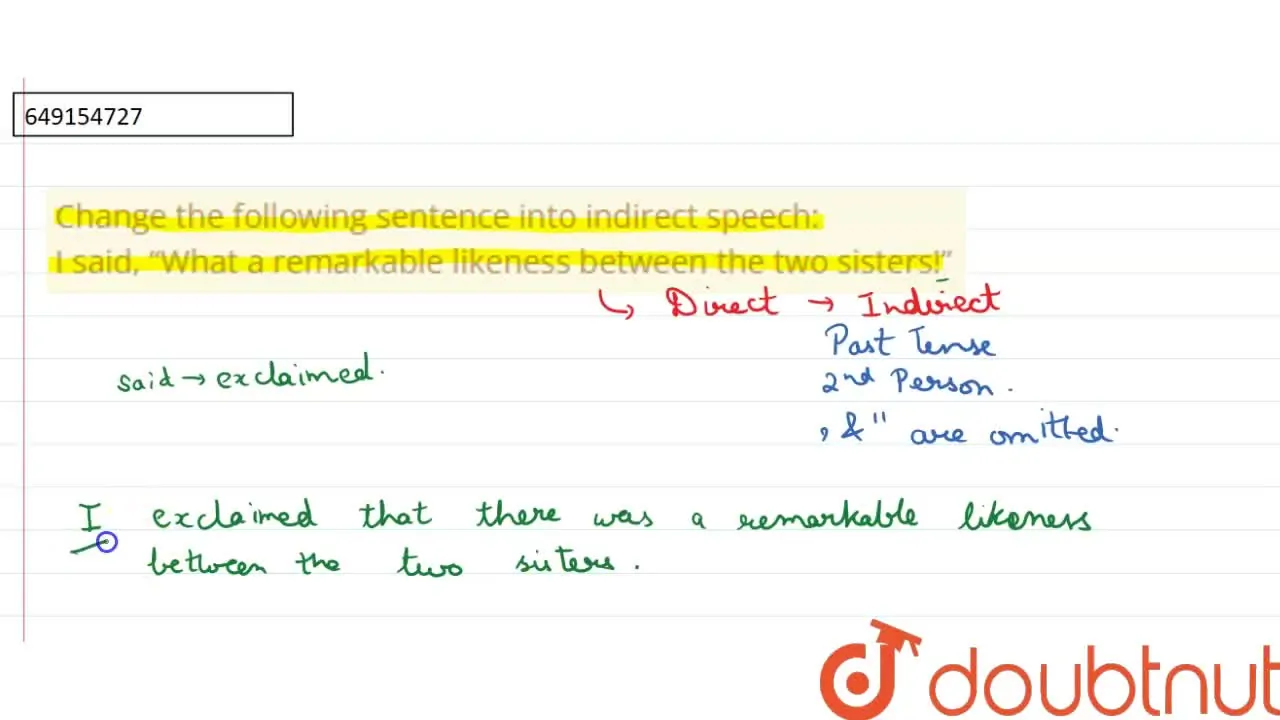 649154727
Change the following sentence into indirect speech:
I said, “What a remarkable likeness between the two sisters!”
Direct → Indirect
Past Tense
said → exclaimed.
2nd Person.
, & " are omitted.
I exclaimed that there was a remarkable likeness
between the two sisters.
doubtnut